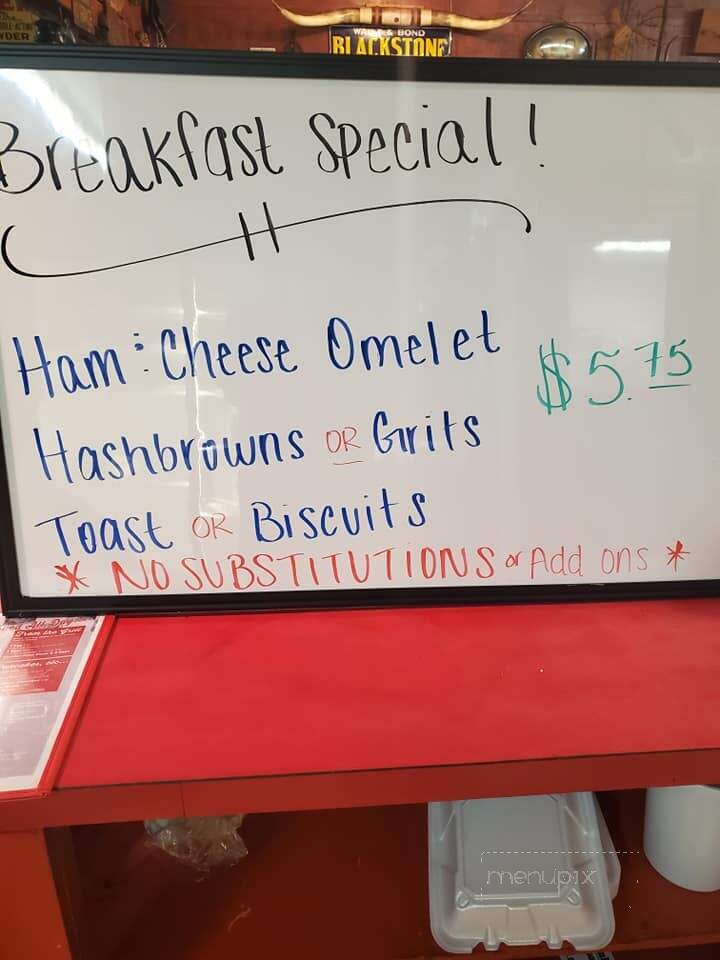 BLACKSTONE
Breakfast Special!
Ham & Cheese Omelet
$5.75
Hashbrowns OR Grits
Toast OR Biscuits
* NO SUBSTITUTIONS or Add ons *
From the Grill
menupix